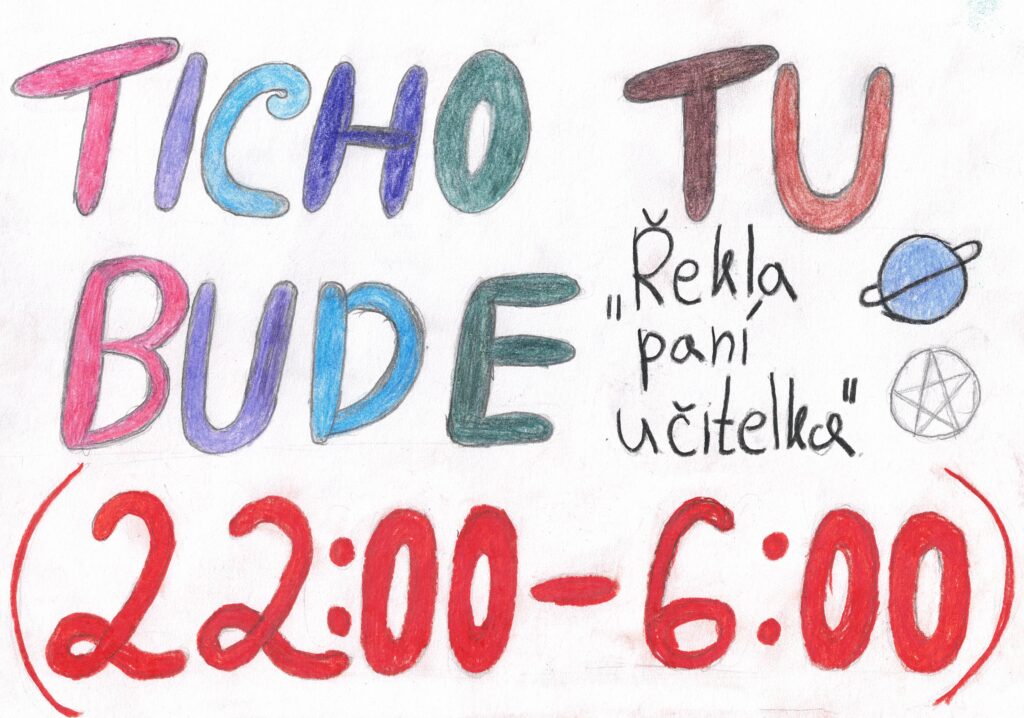 TICHO TU
BUDE
„Řekla
paní
učitelka"
(22:00-6:00)